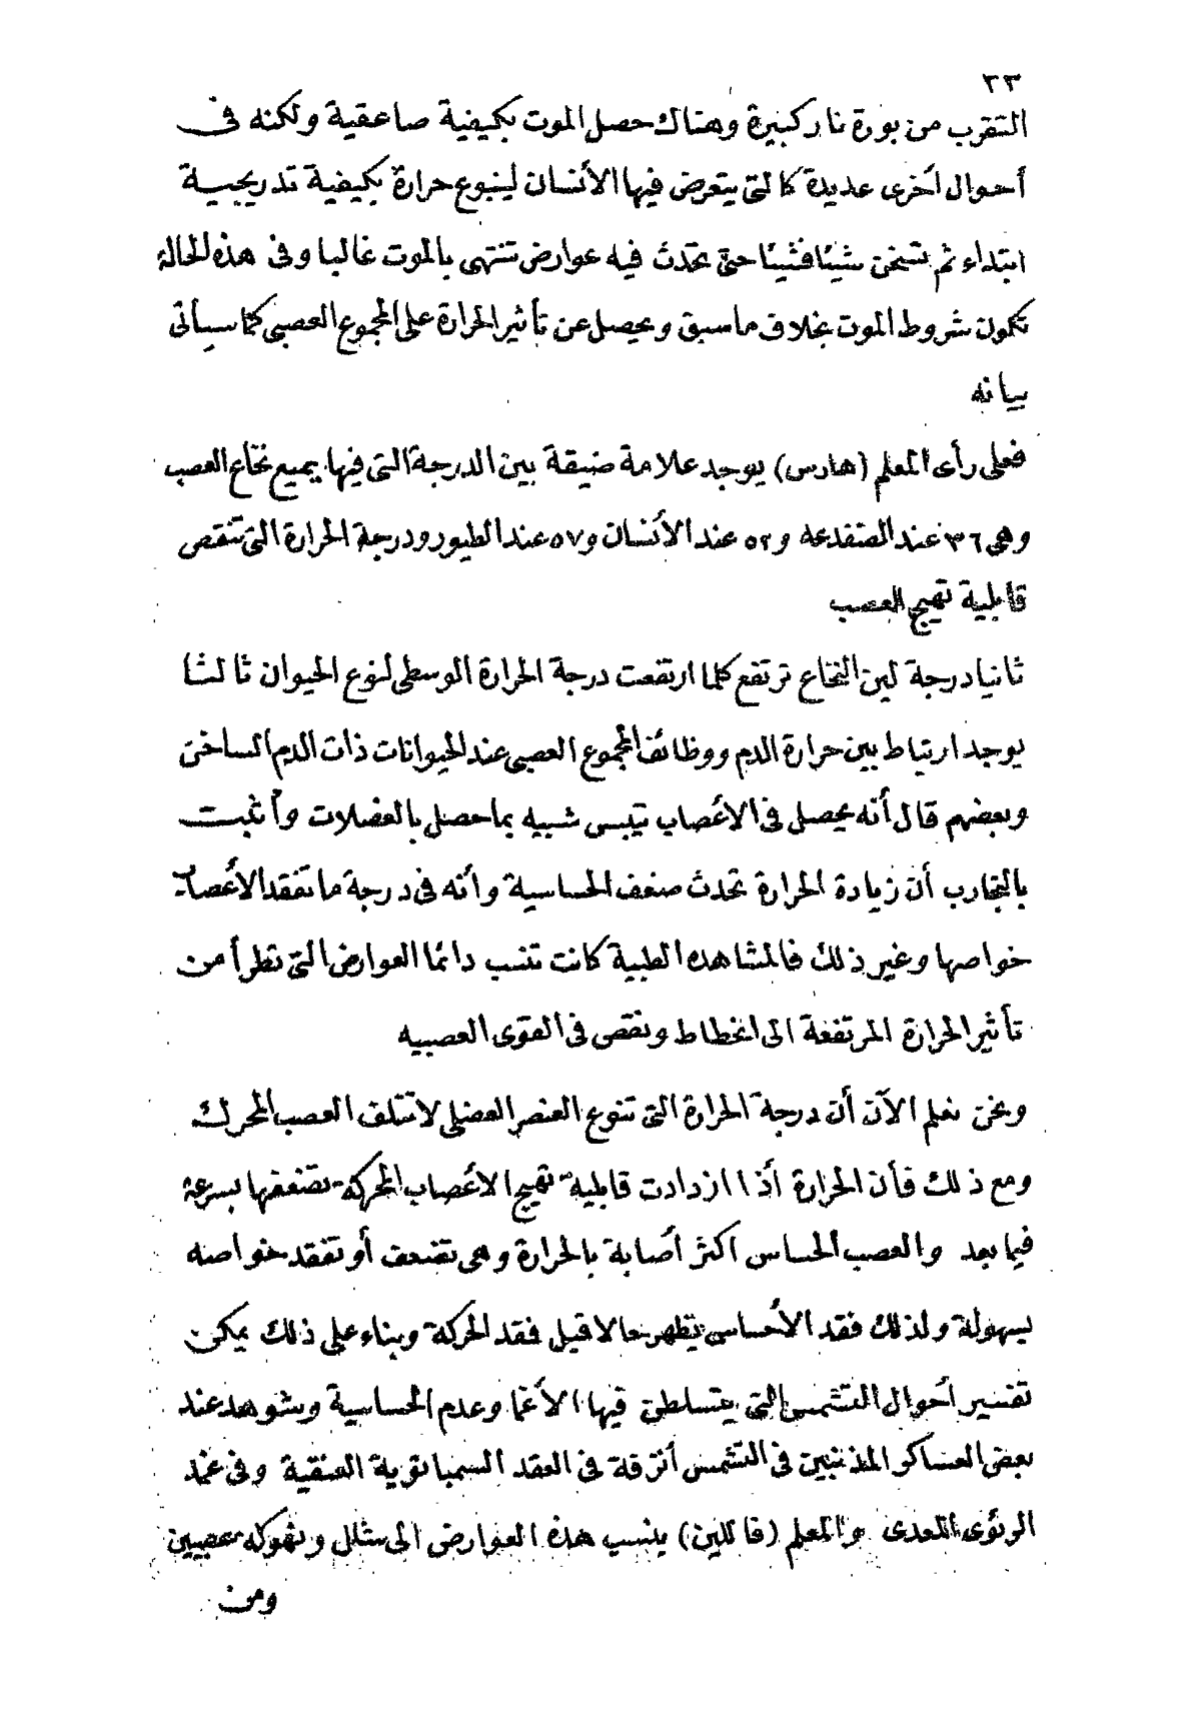 ٣٣
التقرب من بورة نار كبيرة وهناك حصل الموت بكيفية صاعقية ولكنه فى
أحوال أخرى عديدة كالتى يتعرض فيها الأنسان لينبوع حرارة بكيفية تدريجيـة
ابتداء ثم تسخن شيئا فشيئا حتى تحدث فيه عوارض تنتهى بالموت غالبا وفى هذه الحالة
تكون شروط الموت بخلاف ما سبق ويحصل عن تأثير الحرارة على المجموع العصبى كما سيأتى
بيانه
فعلى رأى المعلم (هارس) يوجد علامة ضيقة بين الدرجة التى فيها يميع نخاع العصب
وهى ٣٦ عند الضفدعه و٥٢ عند الأنسان و٥٧ عند الطيور ودرجة الحرارة التى تنقص
قابلية تهيج العصب
ثانيا درجة لين النخاع ترتفع كلما ارتفعت درجة الحرارة الوسطى لنوع الحيوان ثالثا
يوجد ارتباط بين حرارة الدم ووظائف المجموع العصبى عند الحيوانات ذات الدم الساخن
وبعضهم قال أنه يحصل فى الأعصاب تيبس شبيه بما حصل بالعضلات وأثبت
بالتجارب أن زيادة الحرارة تحدث ضعف الحساسية وأنه فى درجة ما تفقد الأعصاب
خواصها وغير ذلك فالمشاهده الطبية كانت تنسب دائما العوارض التى تطرأ من
تأثير الحرارة المرتفعة الى انخطاط ونقص فى القوى العصبيه
ونحن نعلم الآن أن درجة الحرارة التى تنوع العنصر العضلى لا تتلف العصب المحرك
ومع ذلك فأن الحرارة أذا ازدادت قابلية تهيج الأعصاب المحركة تضعفها بسرعة
فيما بعد والعصب الحساس اكثر أصابة بالحرارة وهى تضعف أو تفقد خواصه
بسهولة ولذلك فقد الأحساس يظهر حالا قبل فقد الحركة وبناء على ذلك يمكن
تفسير أحوال التشمس التى يتسلطن فيها الأغما وعدم الحساسية وشوهد عند
بعض العساكر المذنبين فى التشمس أنزقة فى العقد السمباتوية العنقية وفى غمد
الرئوى المعدى والمعلم (فاللين) ينسب هذه العوارض الى شلل ونهوكة عصبيين
ومن